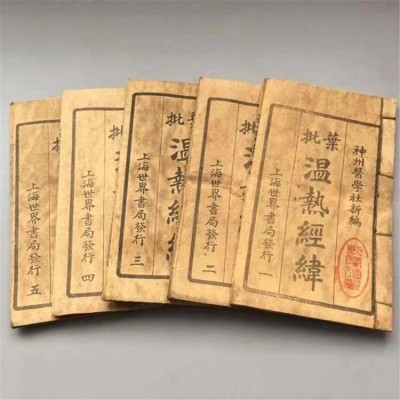 神州醫學社新編
葉批
温熱經緯
上海世界書局發行 一
批
上海世界書局發行 二
批
温熱經緯
上海世界書局發行 三
批
上海世界書局發行 四
上海世界書局發行 五